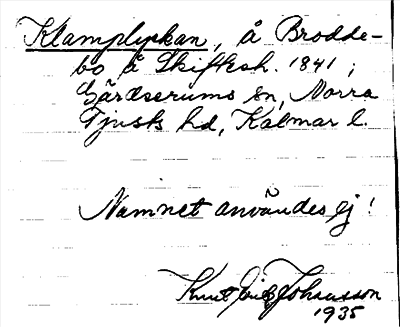 Klamplyckan, å Brodde-
bo å Skiftesh. 1841;
Gärdserums sn, Norra
Tjusts hd, Kalmar l.
Namnet användes ej!
Knut Johansson
1935